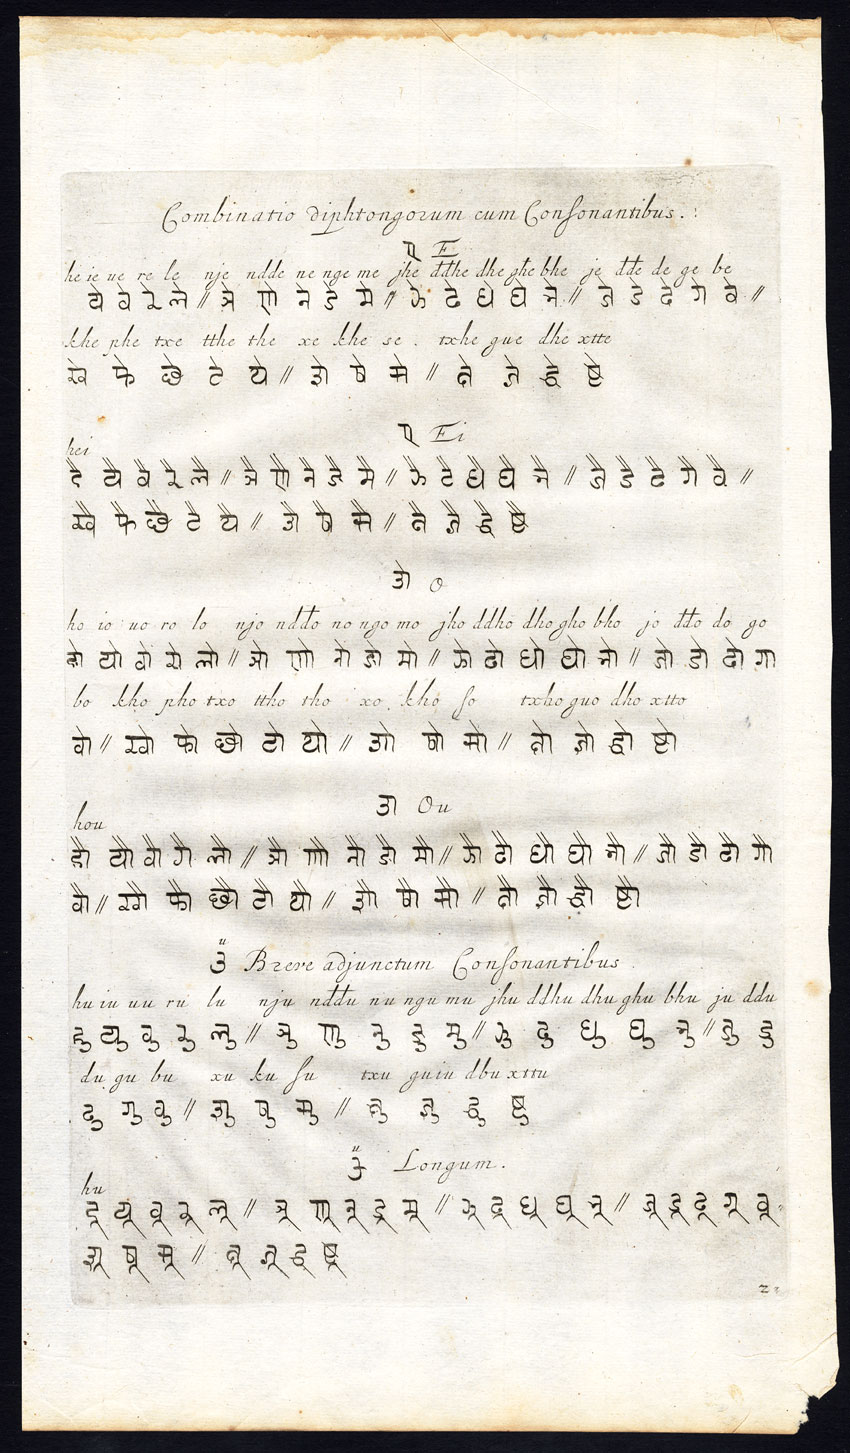 Combinatio diphtongorum cum Consonantibus.:
ए E
he ie ue re le nje ndde ne nge me jhe ddhe dhe ghe bhe je dde de ge be
ये वे रे ले // ञे णे ने ङे मे // झे ढे धे घे भे // जे डे दे गे बे //
khe phe txe tthe the xe khe se . txhe gue dhe xtte
खे फे छे ठे थे // शे षे से //
ए Ei
hei
है यै वै रै लै // ञै णै नै ङै मै // झै ढै धै घै भै // जै डै दै गै बै //
खै फै छै ठै थै // शै षै सै //
ओ O
ho io uo ro lo njo nddo no ngo mo jho ddho dho gho bho jo ddo do go
हो यो वो रो लो // ञो णो नो ङो मो // झो ढो धो घो भो // जो डो दो गो
bo kho pho txo ttho tho xo kho so txho guo dho xtto
बो // खो फो छो ठो थो // शो षो सो //
Ou
hou
हौ यौ वौ रौ लौ // ञौ णौ नौ ङौ मौ // झौ ढौ धौ घौ भौ // जौ डौ दौ गौ
बौ // खौ फौ छौ ठौ थौ // शौ षौ सौ //
u
उ Breve adjunctum Consonantibus.
hu iu uu ru lu nju nddu nu ngu mu jhu ddhu dhu ghu bhu ju ddu
हु यु वु रु लु // ञु णु नु ङु मु // झु ढु धु घु भु // जु डु
du gu bu xu ku su txu guiu dbu xttu
दु गु बु // शु षु सु //
u
Longum.
hu
हू यू वू रू लू // ञू णू नू ङू मू // झू ढू धू घू भू // जू डू दू गू बू
शू षू सू //